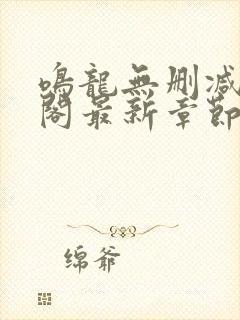 鳴龍無刪减
閣最新章節
绵爷